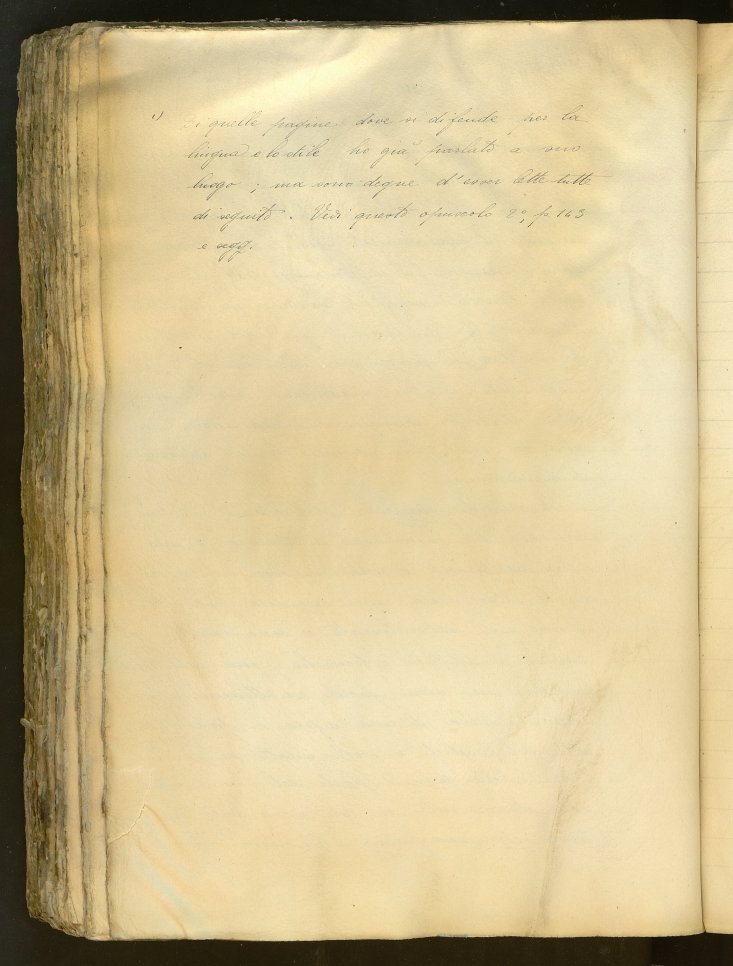 1) Di quelle pagine dove si difende per la
lingua e lo stile ho già parlato a suo
luogo; ma sono degne d'esser lette tutte
di seguito. Vedi questo opuscolo 2º, p. 143
e segg.